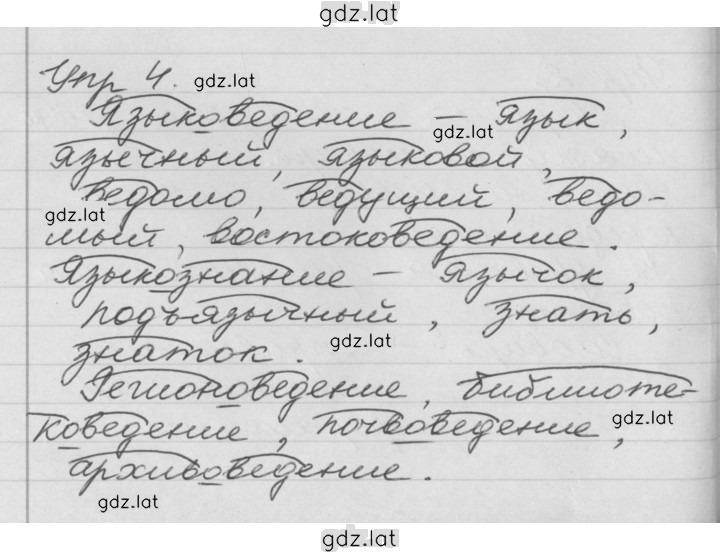 gdz.lat
Упр 4. gdz.lat
Языковедение – язык,
gdz.lat
язычный, языковой,
ведомо, ведущий, ведо-
gdz.lat
мый, востоковедение.
Языкознание – язычок,
подъязычный, знать,
gdz.lat
знаток.
Регионоведение, библиоте-
gdz.lat
коведение, почвоведение,
архивоведение.
gdz.lat
gdz.lat